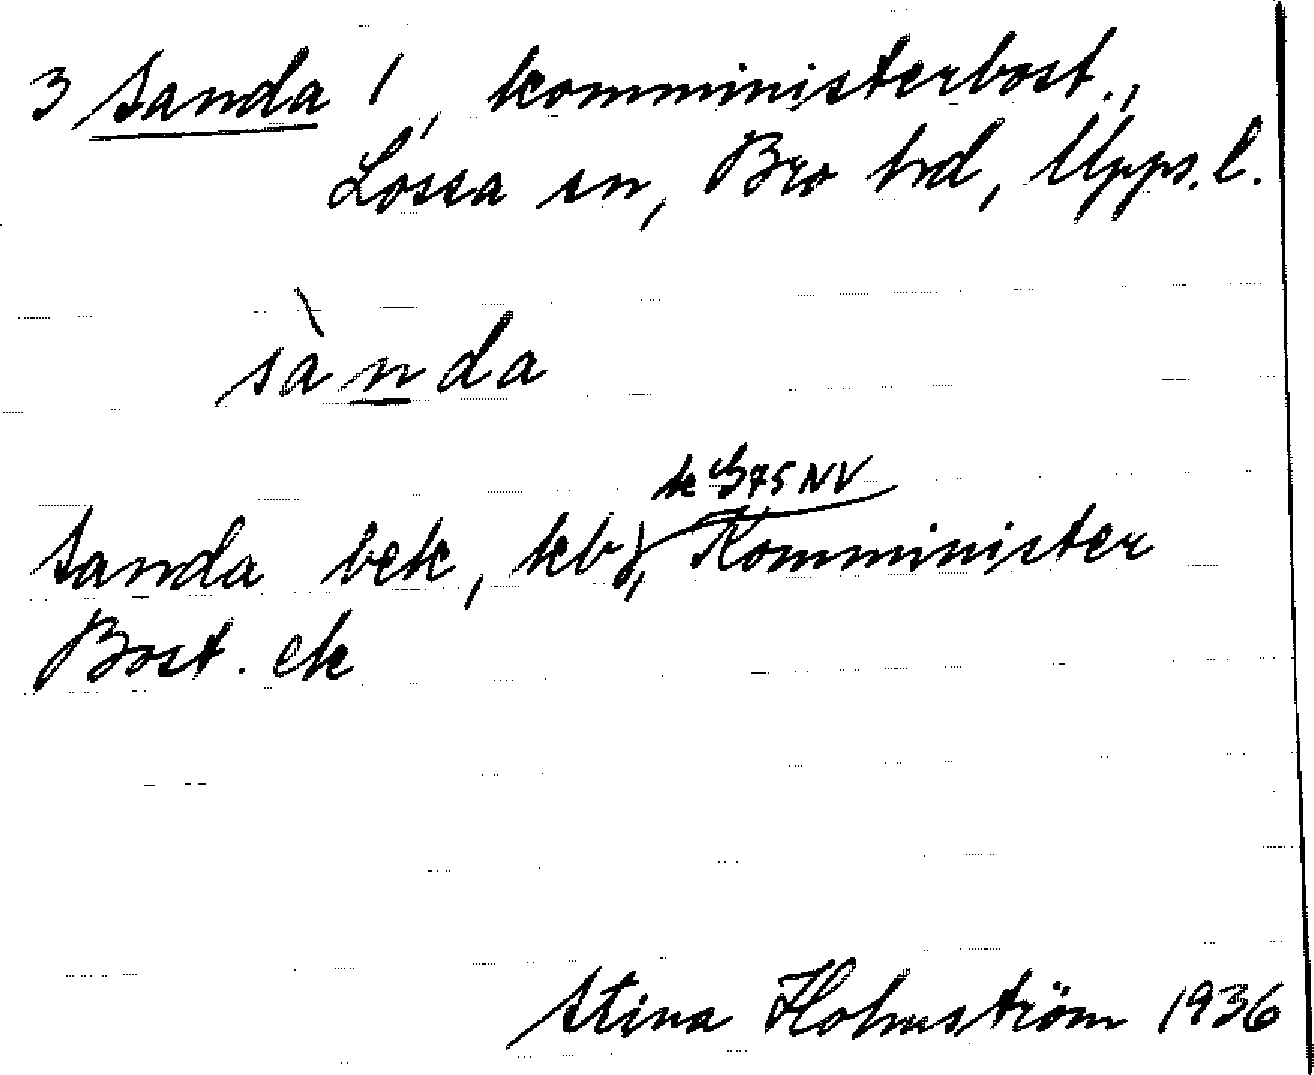 3 Sanda 1, komministerbost.,
Lossa sn, Bro hd, Upps. l.
sànda
k G 75 NV
Sanda bek, kb), Komminister
Bost. ek
Stina Holmström 1936